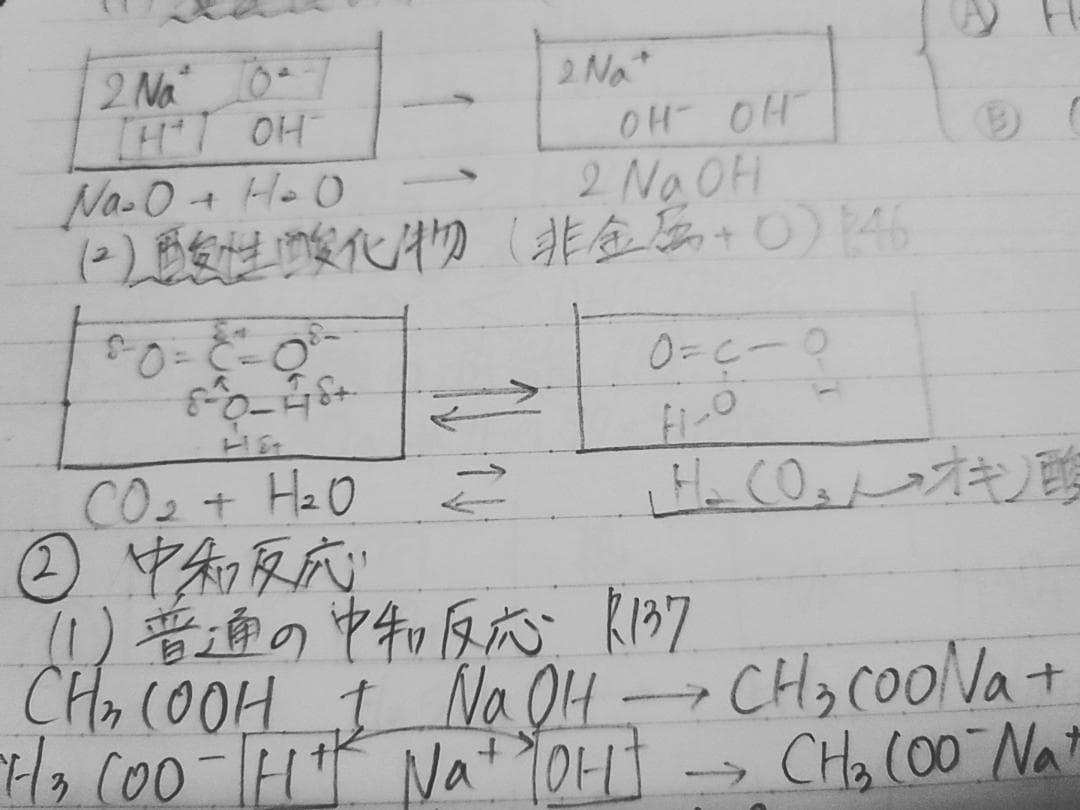 2Na⁺ O²⁻ → 2Na⁺
H⁺ OH⁻ OH⁻ OH⁻
Na₂O + H₂O → 2NaOH
(2) 酸性酸化物 (非金属+O) P.46
δ-O=Cδ+=Oδ- ⇄ O=C-O
δ-O-Hδ+ H-O H
Hδ+
CO₂ + H₂O ⇄ H₂CO₃ → オキソ酸
② 中和反応
(1) 普通の中和反応 P.137
CH₃COOH + NaOH → CH₃COONa +
H₃COO⁻ H⁺ Na⁺ OH → CH₃COO⁻Na⁺
(A) H
(B)